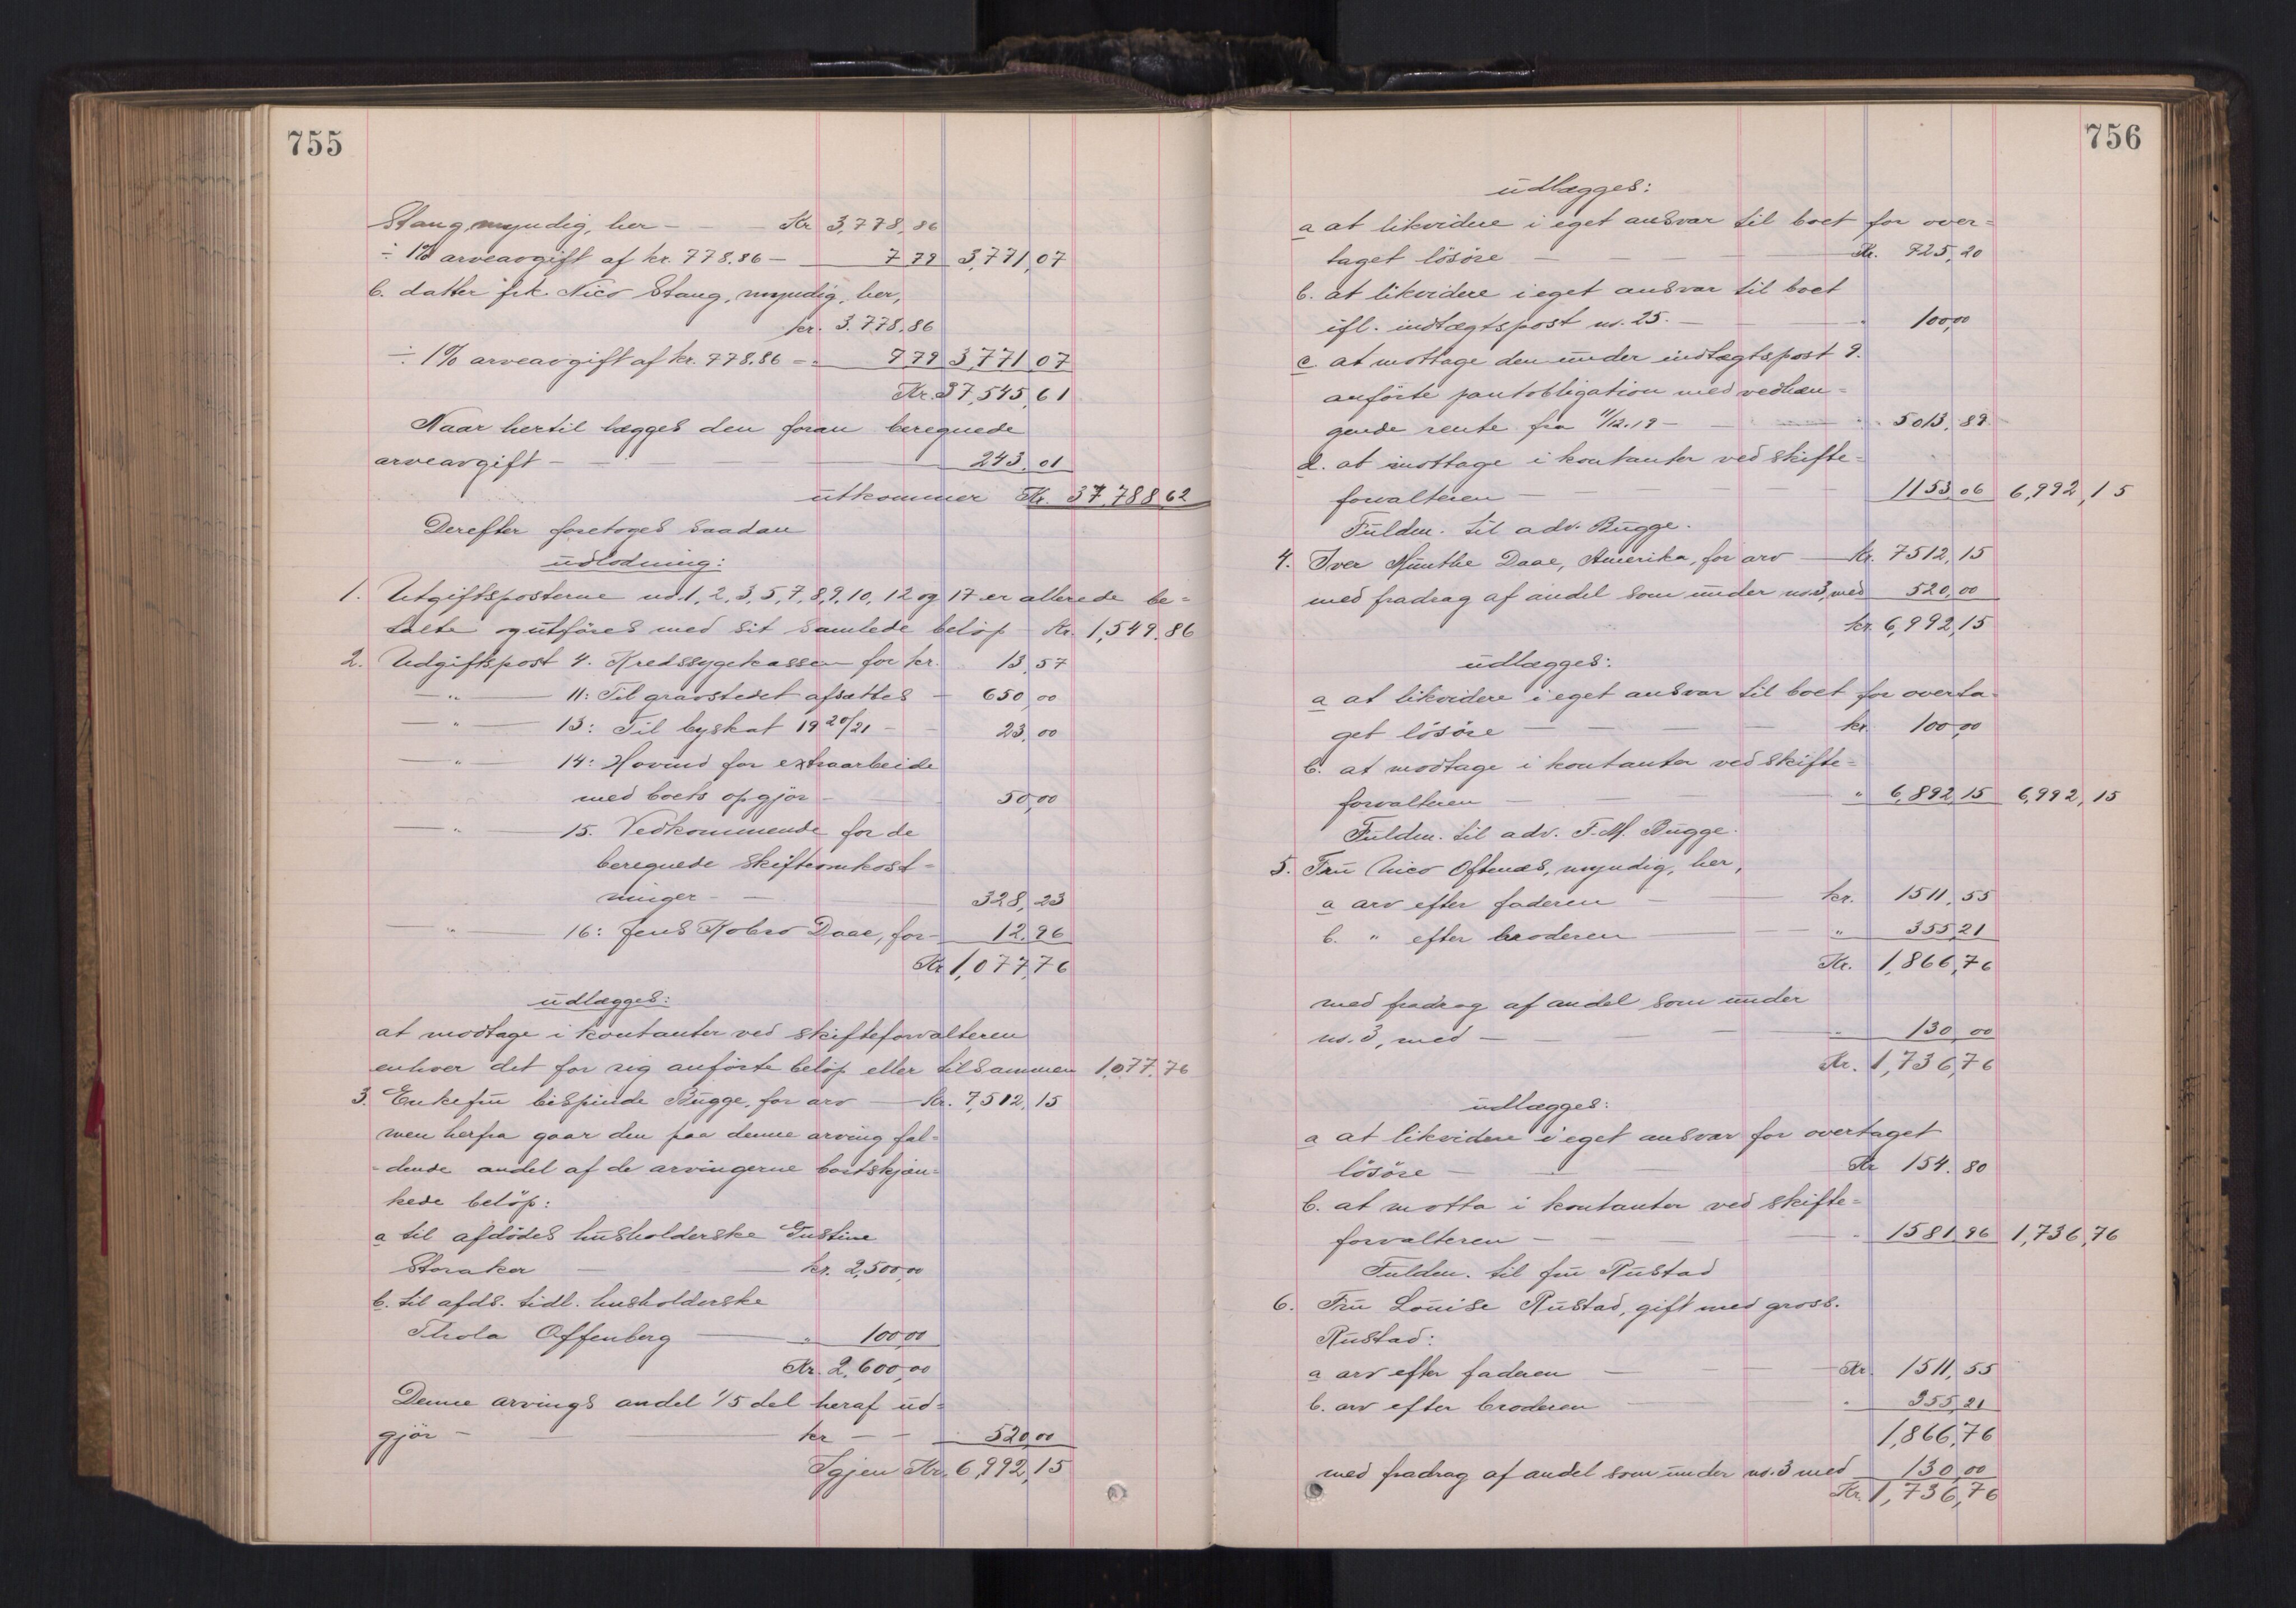 755
Stang, myndig, her - - - Kr. 3,778,86
÷ 1% arveavgift af kr. 778.86 - 7 79 3,771,07
b. datter frk. Nico Stang, myndig, her,
kr. 3.778.86
÷ 1% arveavgift af kr. 778.86 - - 7 79 3,771 07
Kr. 37,545,61
Naar hertil lægges den foran beregnede
arveavgift - - - 243,01
utkommer Kr. 37,788,62
Derefter foretoges saadan
udlodning:
1. Utgiftsposterne no. 1, 2, 3, 5, 7, 8, 9, 10, 12 og 17 er allerede be=
talte og utføres med sit samlede beløp - Kr. 1,549.86
2. Udgiftspost 4. Kredssygekassen for kr. 13,57
— " — 11: Til gravstedet afsættes - 650,00
— " — 13: Til byskat 19 20/21 - - 23,00
— " — 14: Hovind for extraarbeide
med boets opgjør - - 50,00
— " — 15. Vedkommende for de
beregnede skifteomkost=
ninger - - 328,23
— " — 16: Jens Kobro Daae, for - 12.96
Kr. 1,077,76
udlægges:
at modtage i kontanter ved skifteforvalteren
enhver det for sig anførte beløp eller tilsammen 1,077,76
3. Enkefru bispinde Bugge, for arv — Kr. 7,512,15
men herfra gaar den paa denne arving fal=
-dende andel af de arvingerne bortskjæn=
kede beløp:
a til afdødes husholderske Gustine
Storaker - - kr. 2,500,00
b. til afds. tidl. husholderske
Thola Offenberg — " 100,00
Kr. 2,600,00
Denne arvings andel 1/5 del heraf ud=
gjør - - kr - - 520,00
Igjen Kr. 6,992,15
756
udlægges:
a at likvidere i eget ansvar til boet for over=
taget løsøre - - - Kr. 725,20
b. at likvidere i eget ansvar til boet
ifl. indtægtspost no. 25. - - " 100,00
c. at mottage den under indtægtspost 9.
anførte pantobligation med vedhæn=
gende rente fra 11/12.19 - - - " 5013,89
d. at mottage i kontanter ved skifte=
forvalteren - - - 1153,06 6,992,15
Fuldm. til adv. Bugge.
4. Iver Munthe Daae, Amerika, for arv — Kr. 7512,15
med fradrag af andel som under no. 3, med 520,00
kr. 6,992,15
udlægges:
a at likvidere i eget ansvar til boet for overta-
get løsøre - - - kr. 100,00
b. at modtage i kontanter ved skifte=
forvalteren - - - " 6,892,15 6,992,15
Fuldm. til adv. F. M. Bugge.
5. Fru Nico Oftenæs, myndig, her,
a arv efter faderen - - kr. 1511,55
b. " efter broderen — - " 355,21
Kr. 1,866,76
med fradrag af andel som under
no. 3, med - - - " 130,00
Kr. 1,736,76
udlægges:
a at likvidere i eget ansvar for overtaget
løsøre - - - Kr 154.80
b. at motta i kontanter ved skifte=
forvalteren - - - " 1581,96 1,736,76
Fuldm. til fru Rustad
6. Fru Louise Rustad, gift med gross.
Rustad:
a arv efter faderen - - - Kr. 1511,55
b. arv efter broderen - - " 355,21
1,866,76
med fradrag af andel som under no. 3 med 130,00
Kr. 1,736,76